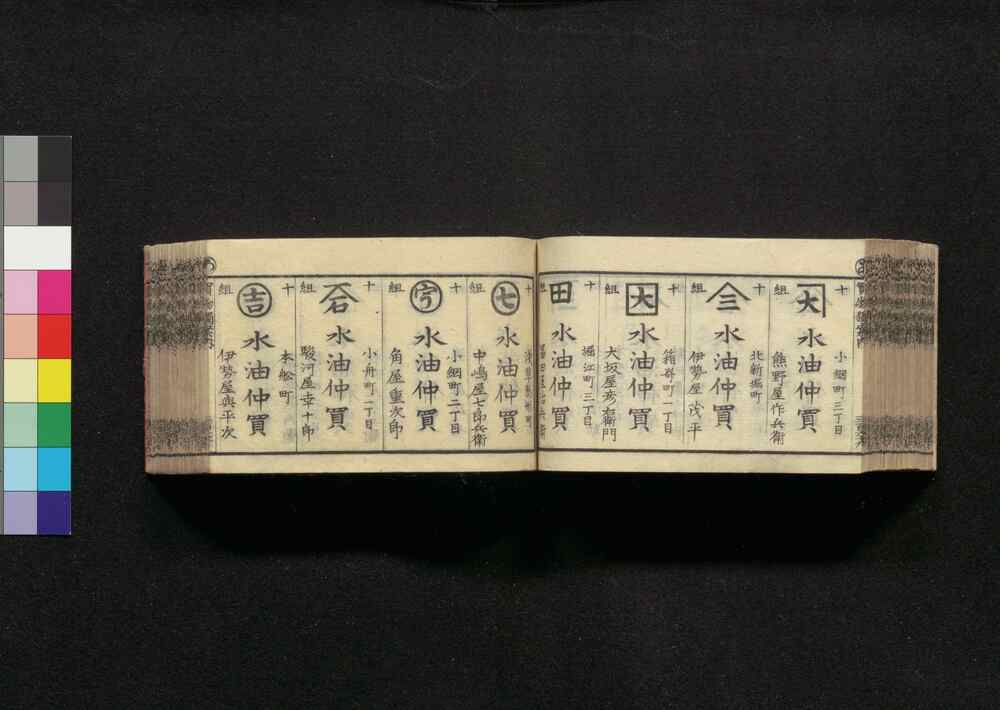 十組
大
小網町三丁目
水油仲買
熊野屋作兵衛
十組
三
北新堀町
水油仲買
伊勢屋茂平
十組
大
箱崎町一丁目
水油仲買
大坂屋彦右衛門
十組
田
堀江町三丁目
水油仲買
十組
七
水油仲買
中嶋屋七郎兵衛
十組
小網町二丁目
水油仲買
角屋重次郎
十組
石
小舟町一丁目
水油仲買
駿河屋幸十郎
十組
吉
本舩町
水油仲買
伊勢屋與平次